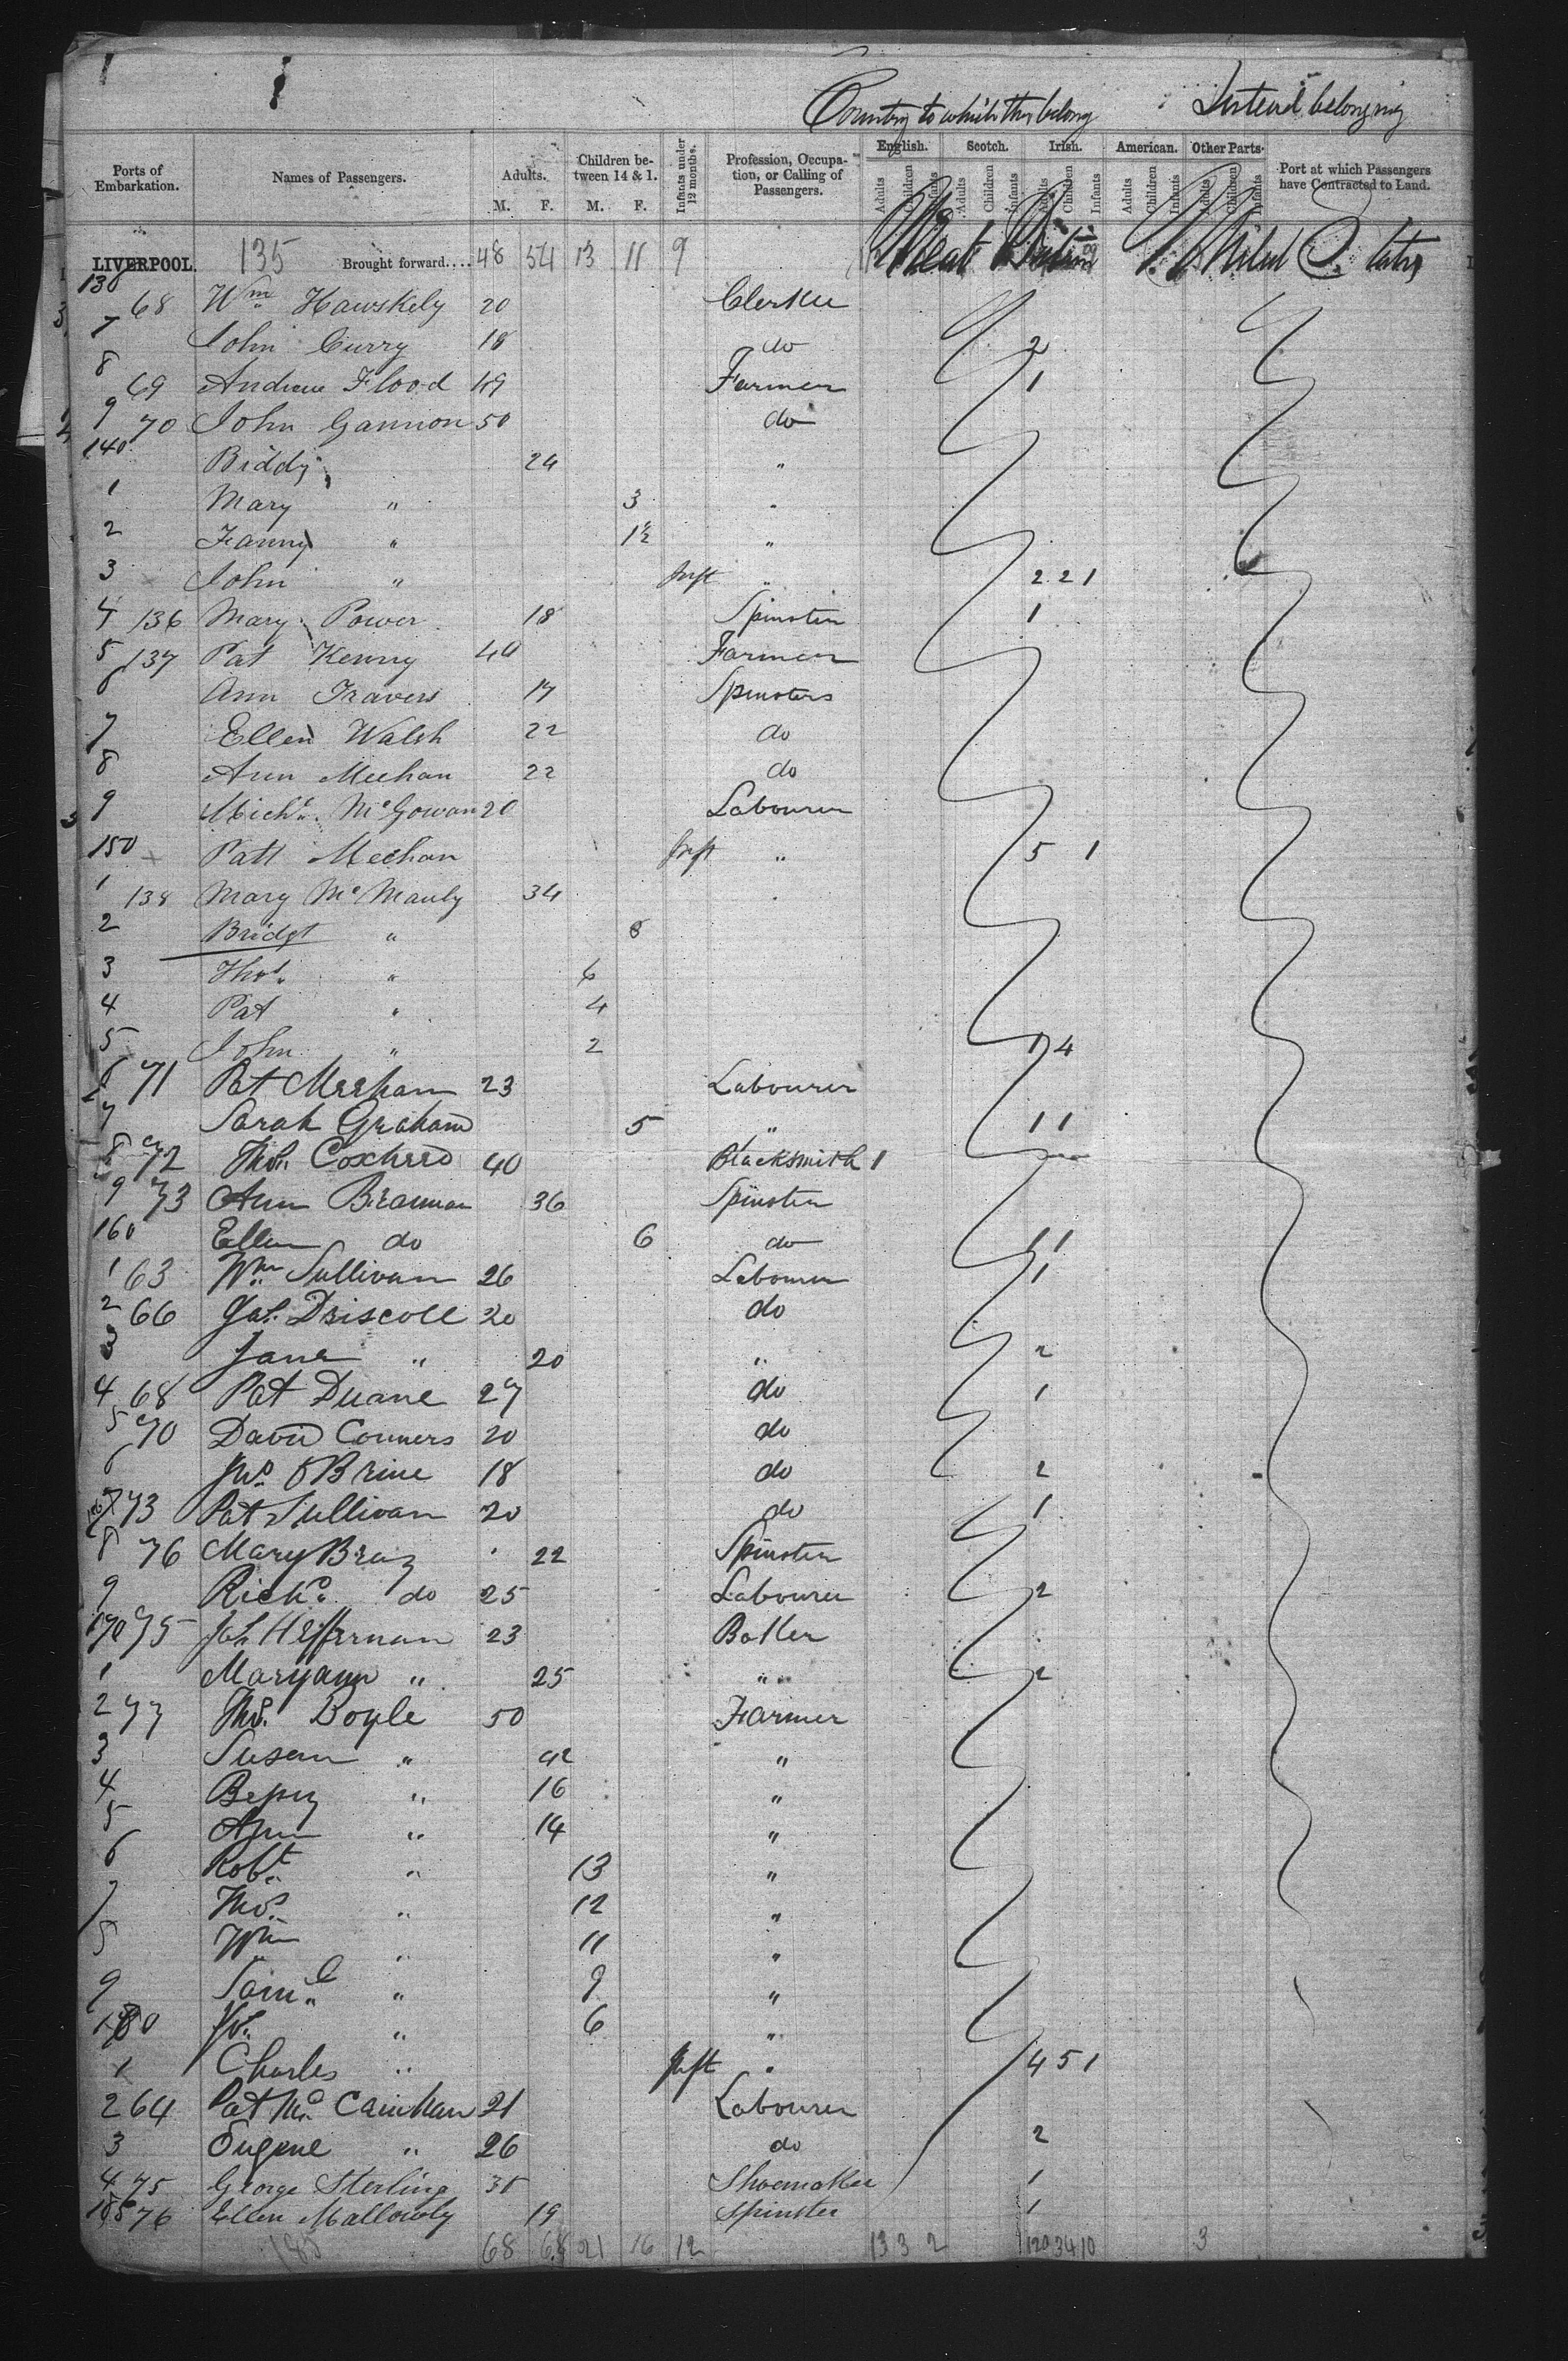 Country to which they belong Intend belonging
Ports of Embarkation. Names of Passengers. Adults. M. F. Children between 14 & 1. M. F. Infants under 12 months. Profession, Occupation, or Calling of Passengers. English. Adults Children Infants Scotch. Adults Children Infants Irish. Adults Children Infants American. Adults Children Infants Other Parts. Adults Children Infants Port at which Passengers have Contracted to Land.
LIVERPOOL. 135 Brought forward.... 48 54 13 11 9 Great Britain United States
68 Wm Hawskely 20
7 John Curry 18 do 2
8 69 Andrew Flood 49 Farmer 1
9 70 John Gannon 50 do
140 Biddy " 24 "
1 Mary " 3 "
2 Fanny " 1½ "
3 John " Inft " 2 2 1
4 136 Mary Power 18 Spinster 1
5 137 Pat Kenny 40 Farmer
6 Ann Travers 17 Spinsters
7 Ellen Walsh 22 do
8 Ann Meehan 22 do
9 Michl. McGowan 20 Labourer
150 Patt Meehan Inft " 5 1
1 138 Mary McManly 34 "
2 Bridgt " 8
3 Thos. " 6
4 Pat " 4
5 John " 2 1 4
6 71 Pat Meehan 23 Labourer
7 Sarah Graham 5 " 1 1
8 72 Thos. Coxheed 40 Blacksmith 1
9 73 Ann Brannan 36 Spinster
160 Ellen do 6 do 1 1
1 63 Wm. Sullivan 26 Labourer 1
2 66 Jas. Driscoll 20 do
3 Jane " 20 " 2
4 68 Pat Duane 27 do 1
5 70 David Conners 20 do
6 Jno. OBrine 18 do 2
7 73 Pat Sullivan 20 do 1
8 76 Mary Bray 22 Spinster
9 Richd. do 25 Labourer 2
170 75 Jas. Heffernan 23 Baker
1 Maryann " 25 " 2
2 77 Thos. Boyle 50 Farmer
3 Susan " 42 "
4 Bessy " 16 "
5 Ann " 14 "
6 Robt. " 13 "
7 Thos. " 12 "
8 Wm " 11 "
9 Saml. " 9 "
180 Jos. " 6 "
1 Charles " Inft " 4 5 1
2 64 Pat Mc 21 Labourer
3 Eugene " 26 do 2
4 75 George Sterling 35 Shoemaker 1
185 76 Ellen Mallowly 19 Spinster 1
185 68 68 21 16 12 13 3 2 120 34 10 3